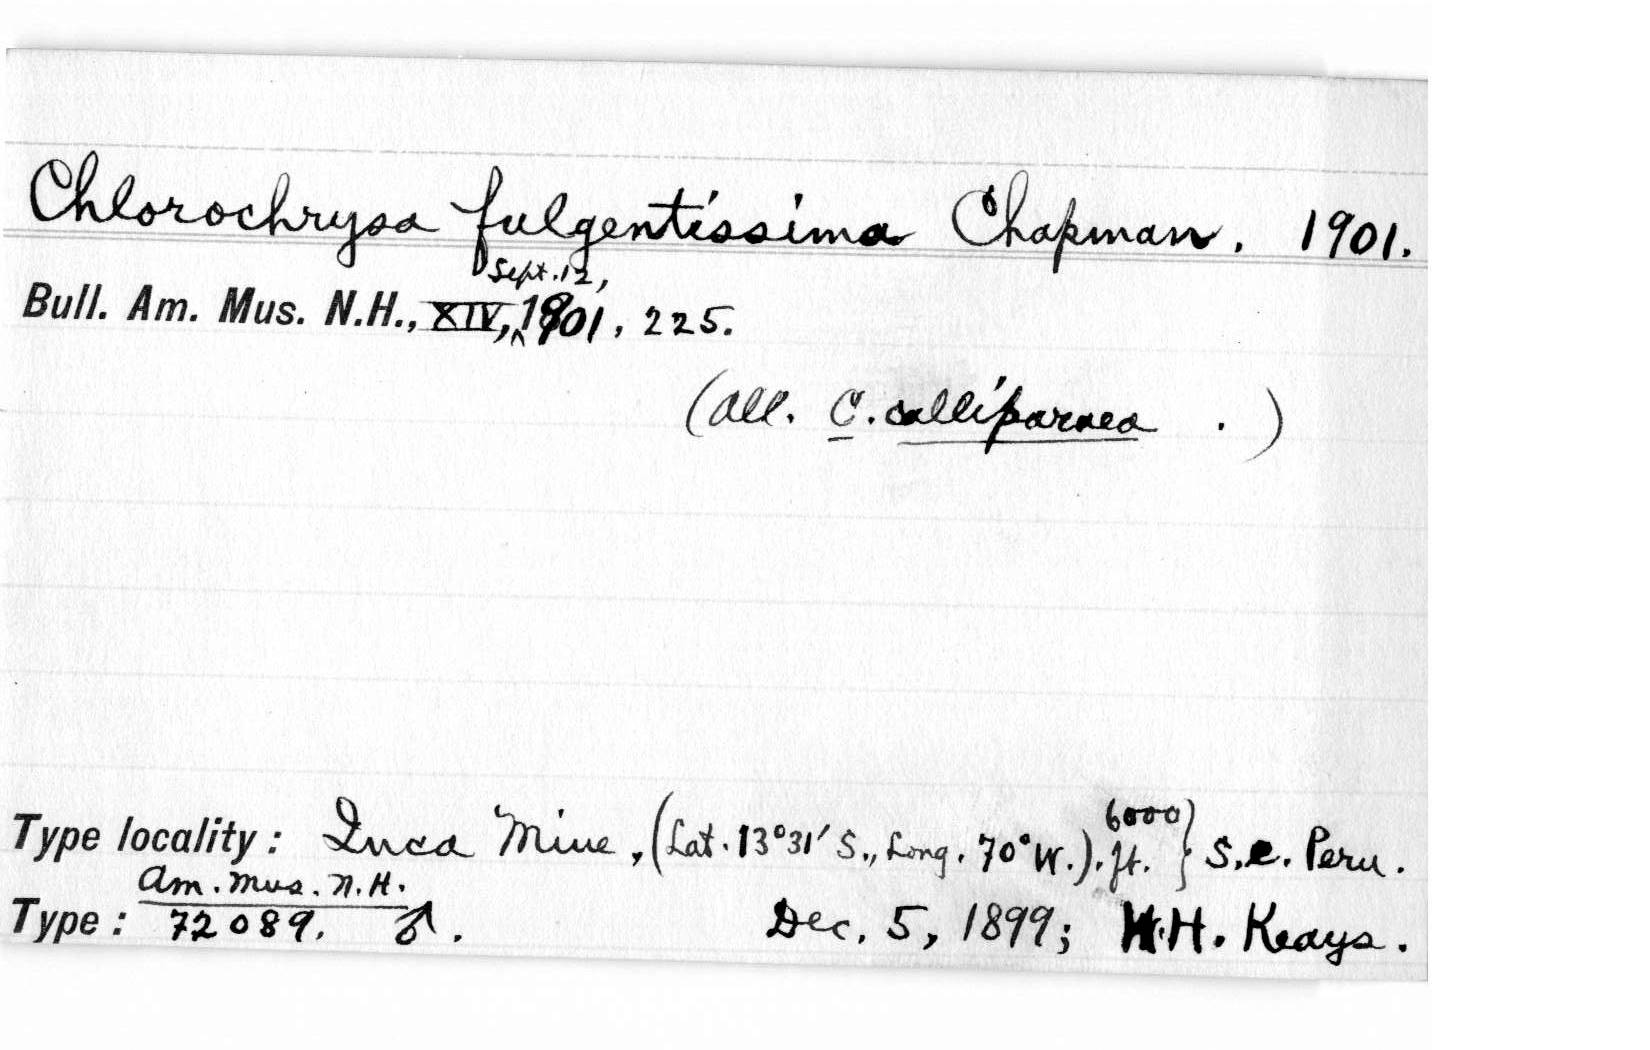 Chlorochrysa fulgentissima Chapman. 1901.
Sept. 12,
Bull. Am. Mus. N.H., XIV, 1901, 225.
(all. C. calliparaea . )
6000
Type locality: Inca Mine, (Lat. 13°31' S., Long. 70° W.). ft. } S.E. Peru.
Am. Mus. N.H.
Type: 72089. ♂. Dec. 5, 1899; H.H. Keays.